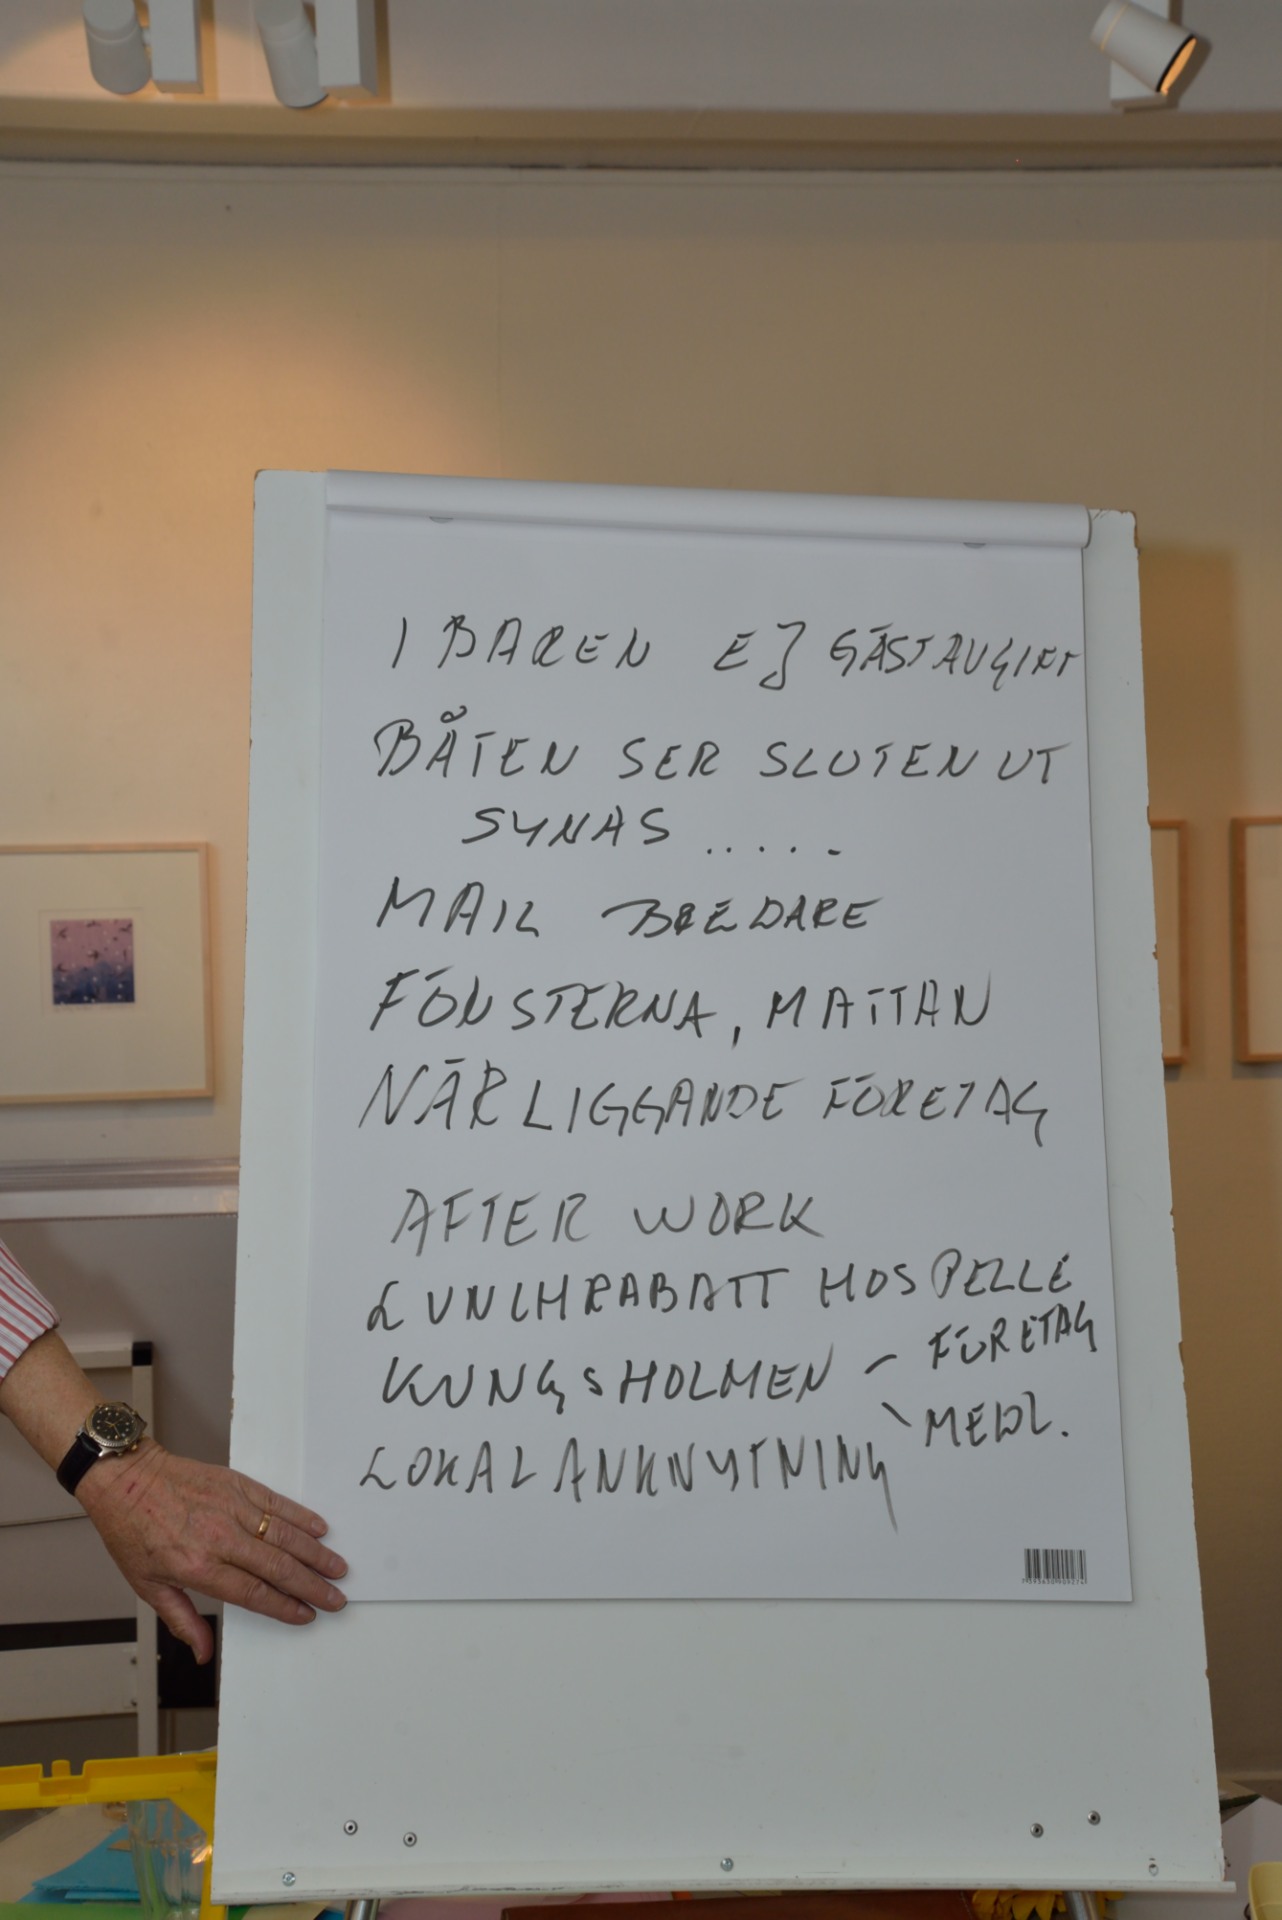 I BAREN EJ GÄSTAVGIFT
BÅTEN SER SLUTEN UT
SYNAS .....
MAIL BREDARE
FÖNSTERNA, MATTAN
NÄRLIGGANDE FÖRETAG
AFTER WORK
LUNCHRABATT HOS PELLE
KUNGSHOLMEN – FÖRETAG
\ MEDL.
LOKALANKNYTNING